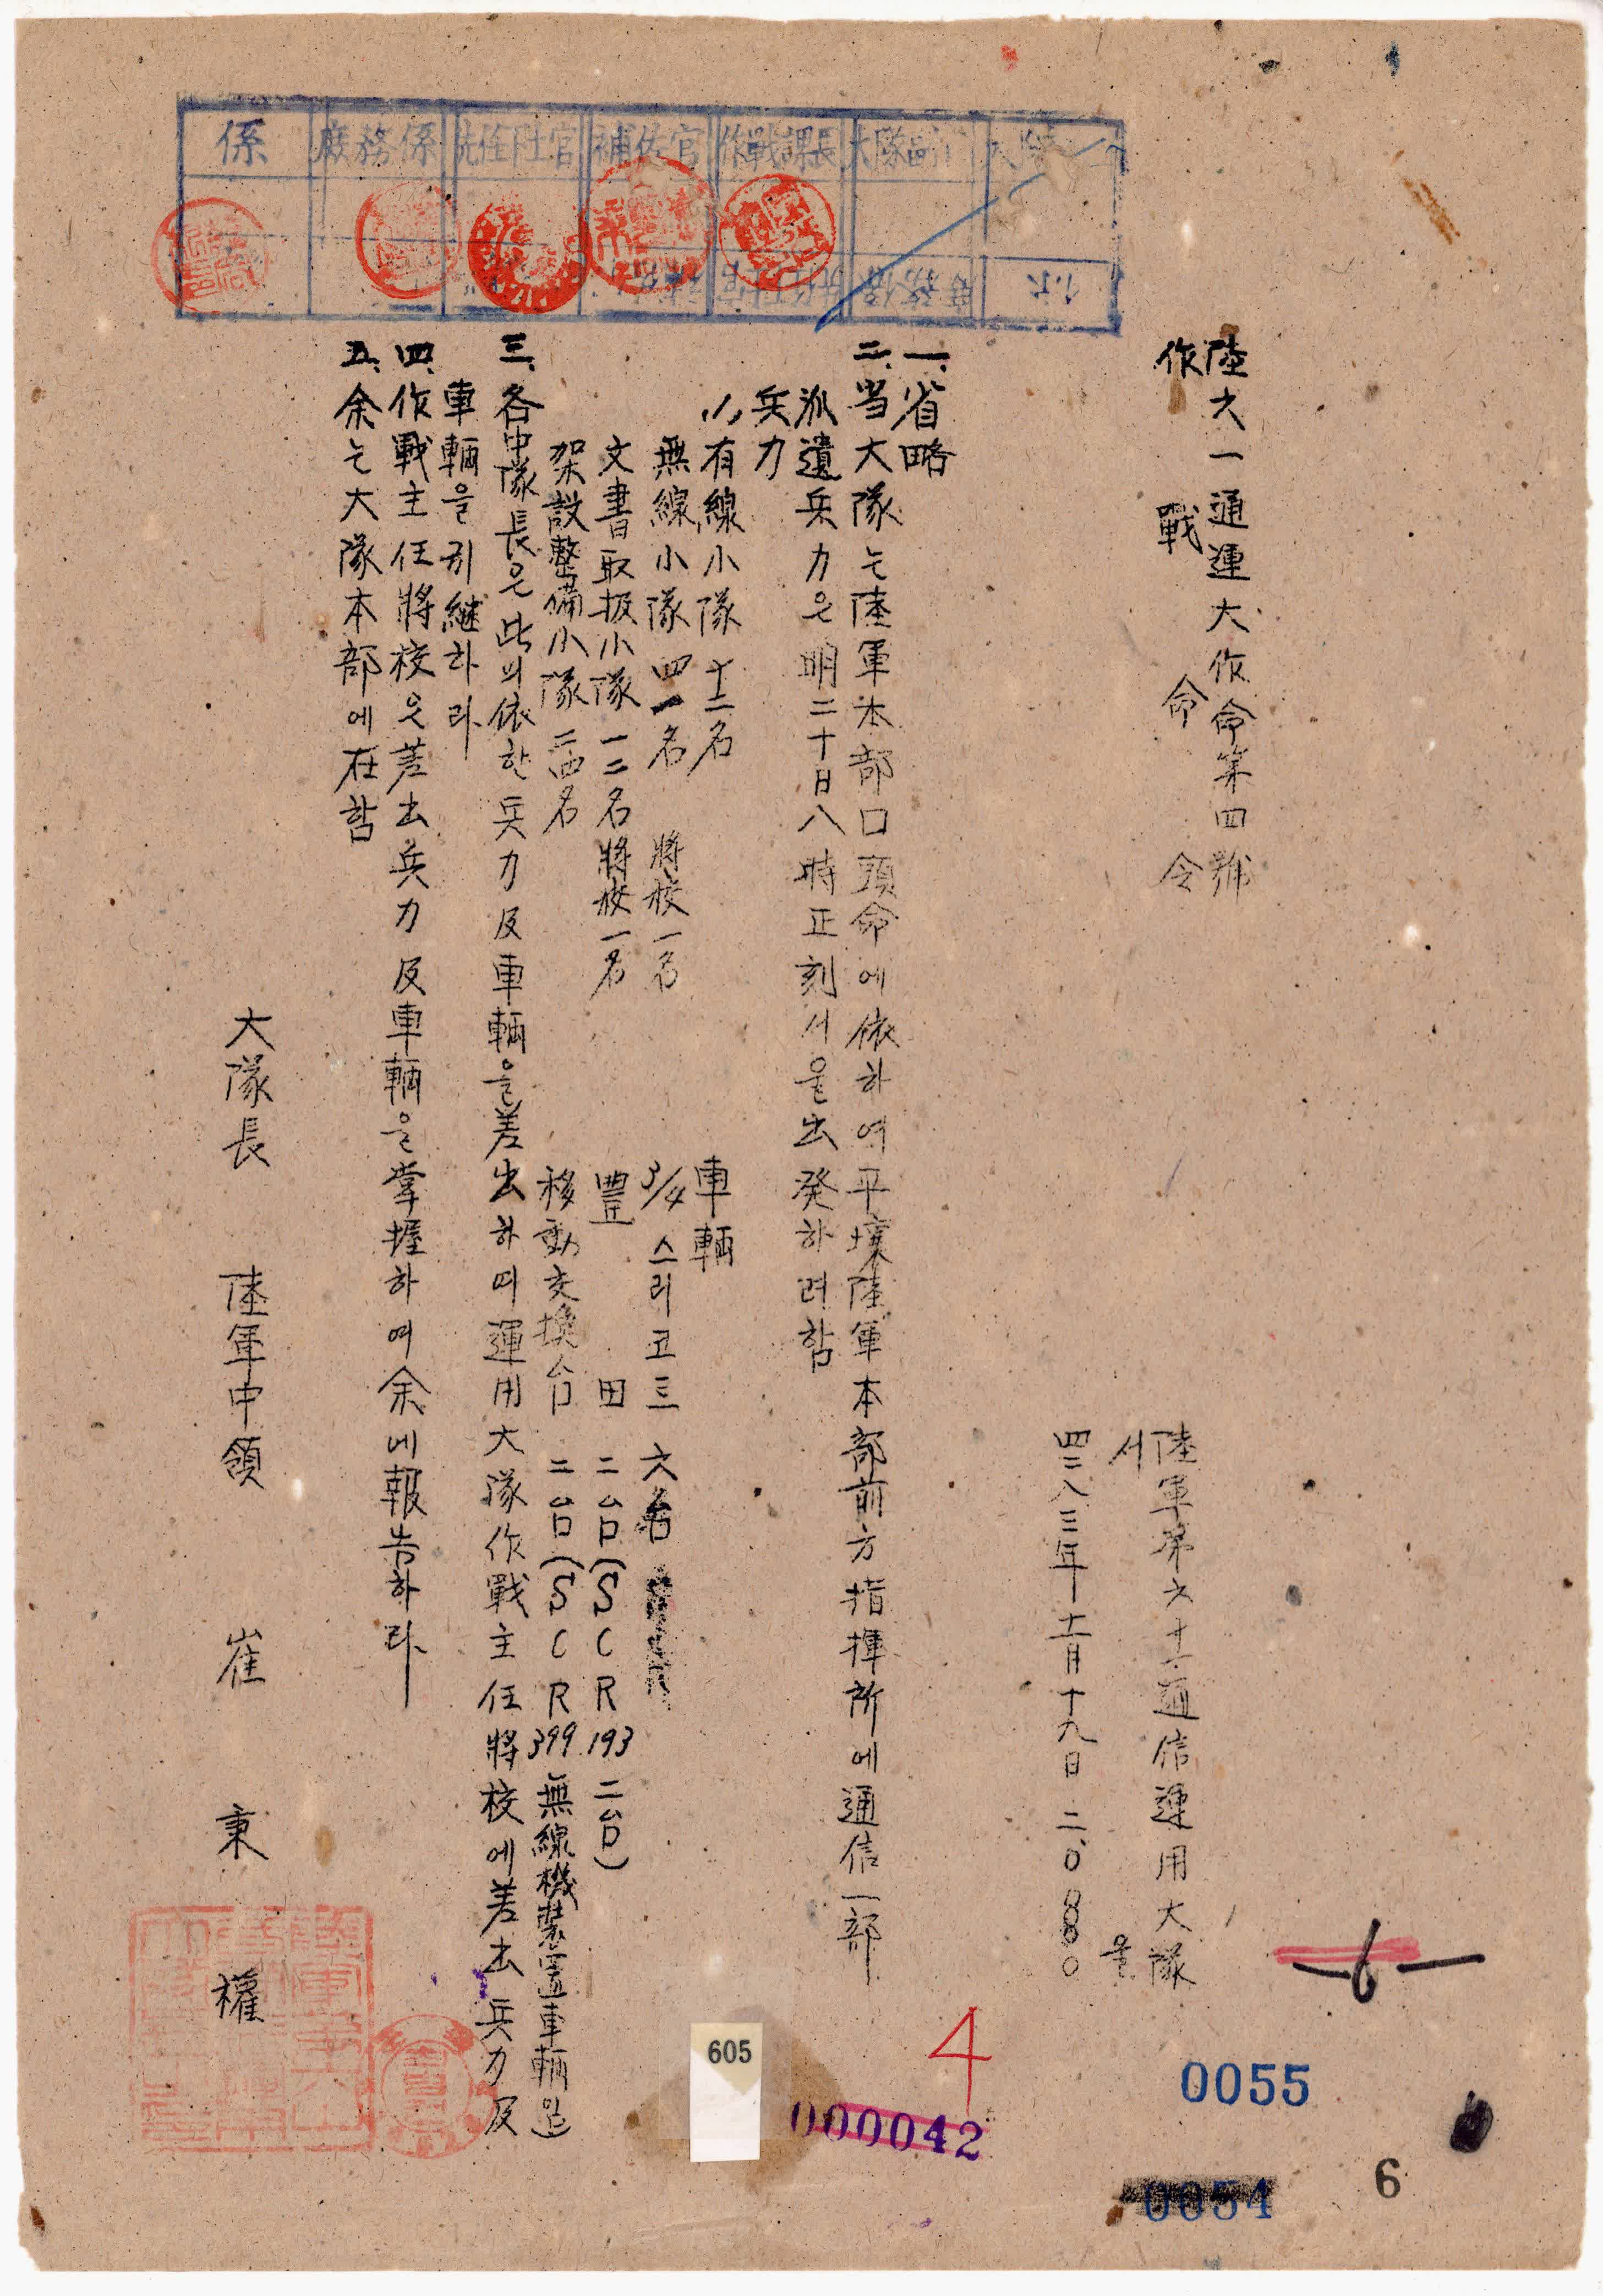 陸六一通運大作命第四號
作戰命令
陸軍第六十一通信運用大隊
서울
四二八三年 十一月 十九日 二、〇〇〇〇
一、省略
二、当大隊는 陸軍本部口頭命에 依하여 平壤陸軍本部前方指揮所에 通信一部
派遣兵力을 明二十日八時正刻서울出発하려함
兵力
(1) 有線小隊 十二名
車輛
無線小隊 四一名 將校一名
3/4 스리코三 六台
文書取扱小隊 一二名 將校一名
豊田 二台 (SCR 193 二台)
架設整備小隊 二四名
移動交換台 二台 (SCR 399 無線機裝置車輛임)
三、各中隊長은 此의 依한 兵力及車輛을 差出하며 運用大隊作戰主任將校에 差出兵力及
車輛을 引継하라
四、作戰主任將校은 差出兵力及車輛을 掌握하여 余에 報告하라
五、余는 大隊本部에 在함
大隊長 陸軍中領 崔秉權
係
庶務係
先任下士官
補佐官
作戰課長
大隊副
6
4
605
000042
0055
0054
6